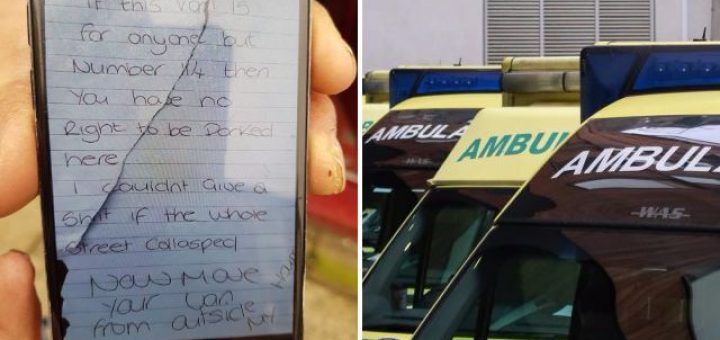 If this van is
for anyone but
Number 14 then
You have no
Right to be Parked
here
I couldnt Give a
Shit if the whole
Street Collasped
Now Move
Your Van
from outside
My
Home
AMBULA
AMBU
AMBUL
WAS
WAS